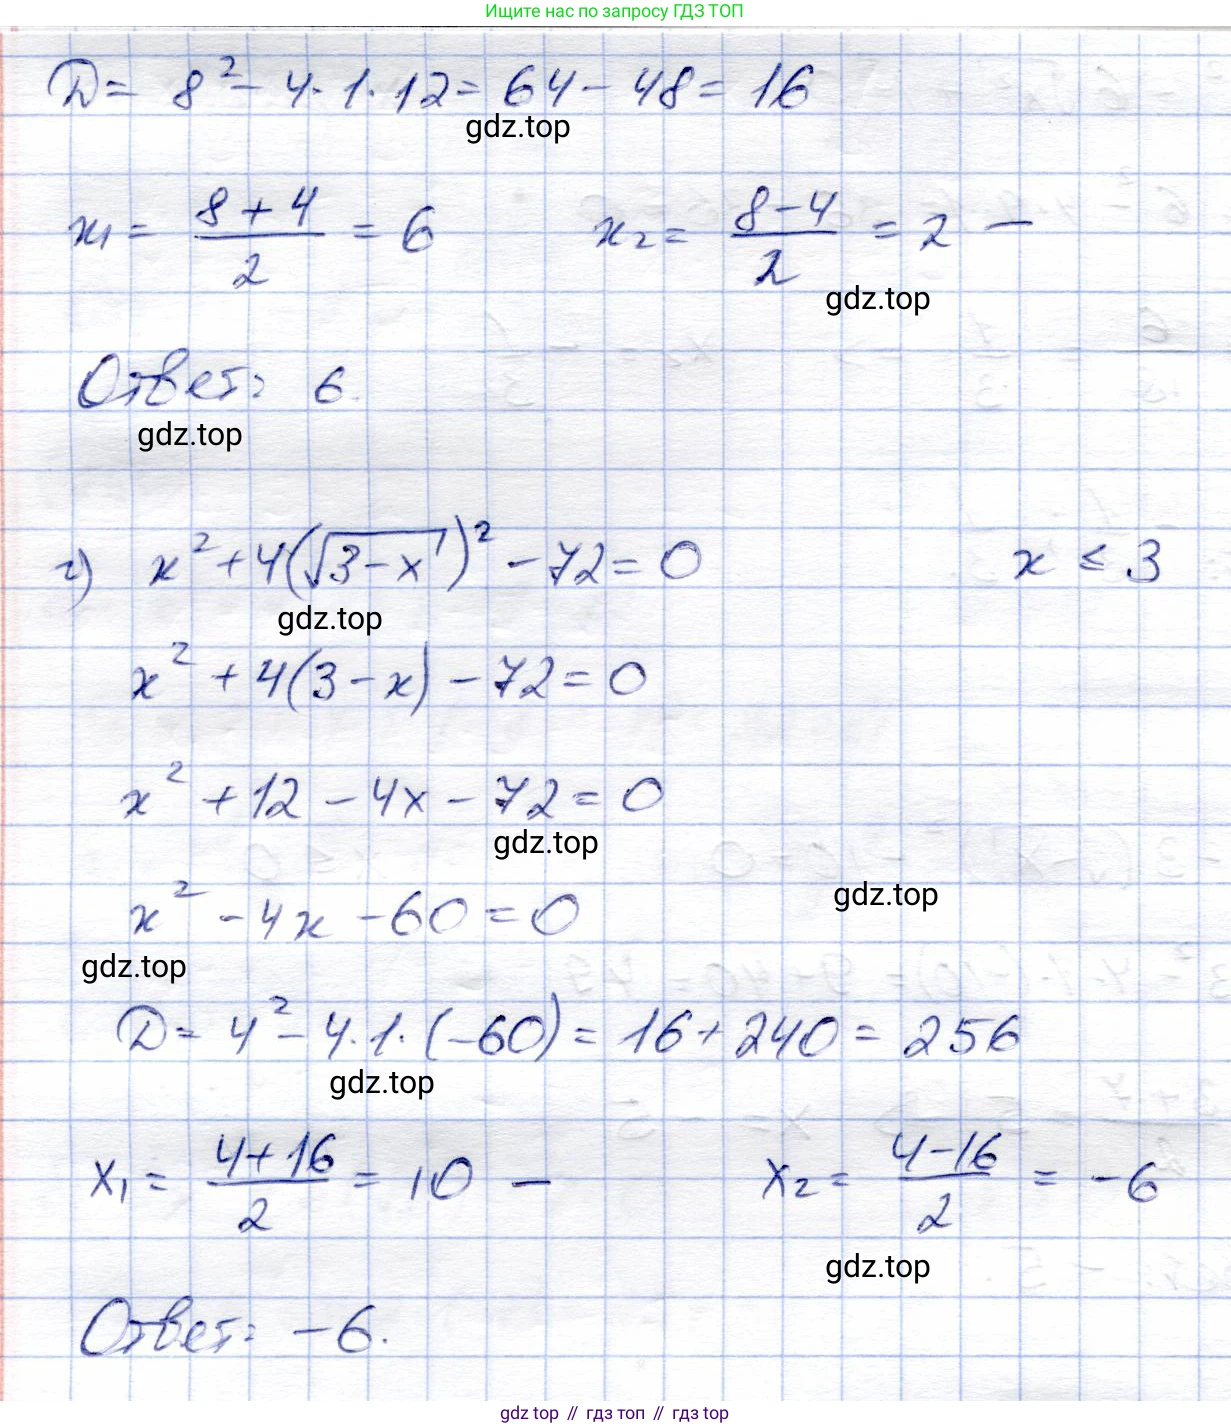 Ищите нас по запросу ГДЗ ТОП
D = 8² - 4·1·12 = 64 - 48 = 16
gdz.top
x₁ = (8+4)/2 = 6 x₂ = (8-4)/2 = 2 —
gdz.top
Ответ: 6.
gdz.top
г) x² + 4(√(3-x))² - 72 = 0 x ≤ 3
gdz.top
x² + 4(3-x) - 72 = 0
x² + 12 - 4x - 72 = 0
gdz.top
gdz.top
x² - 4x - 60 = 0
gdz.top
D = 4² - 4·1·(-60) = 16 + 240 = 256
gdz.top
x₁ = (4+16)/2 = 10 — x₂ = (4-16)/2 = -6
gdz.top
Ответ: -6.
gdz top // гдз топ // gdz top